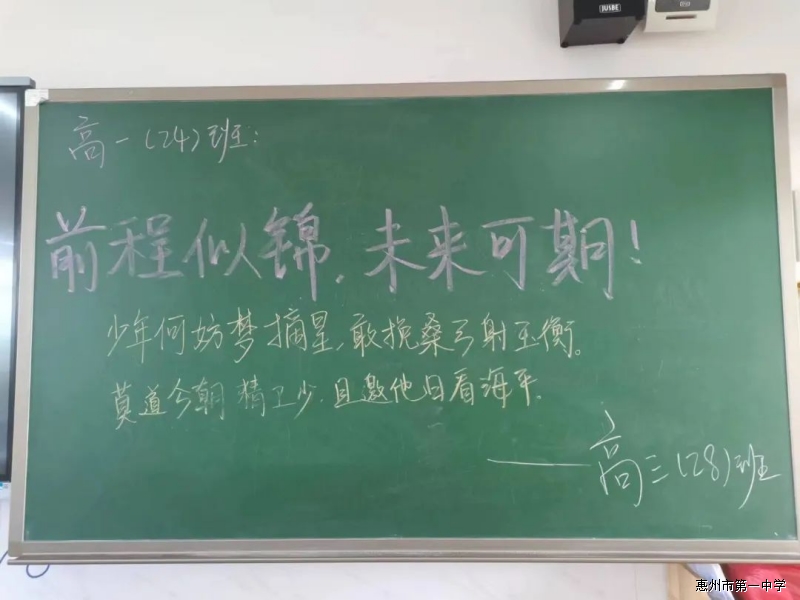 JUSBE
高一(24)班:
前程似锦,未来可期!
少年何妨梦摘星,敢挽桑弓射玉衡。
莫道今朝精卫少,且邀他日看海平.
——高三(28)班
惠州市第一中学